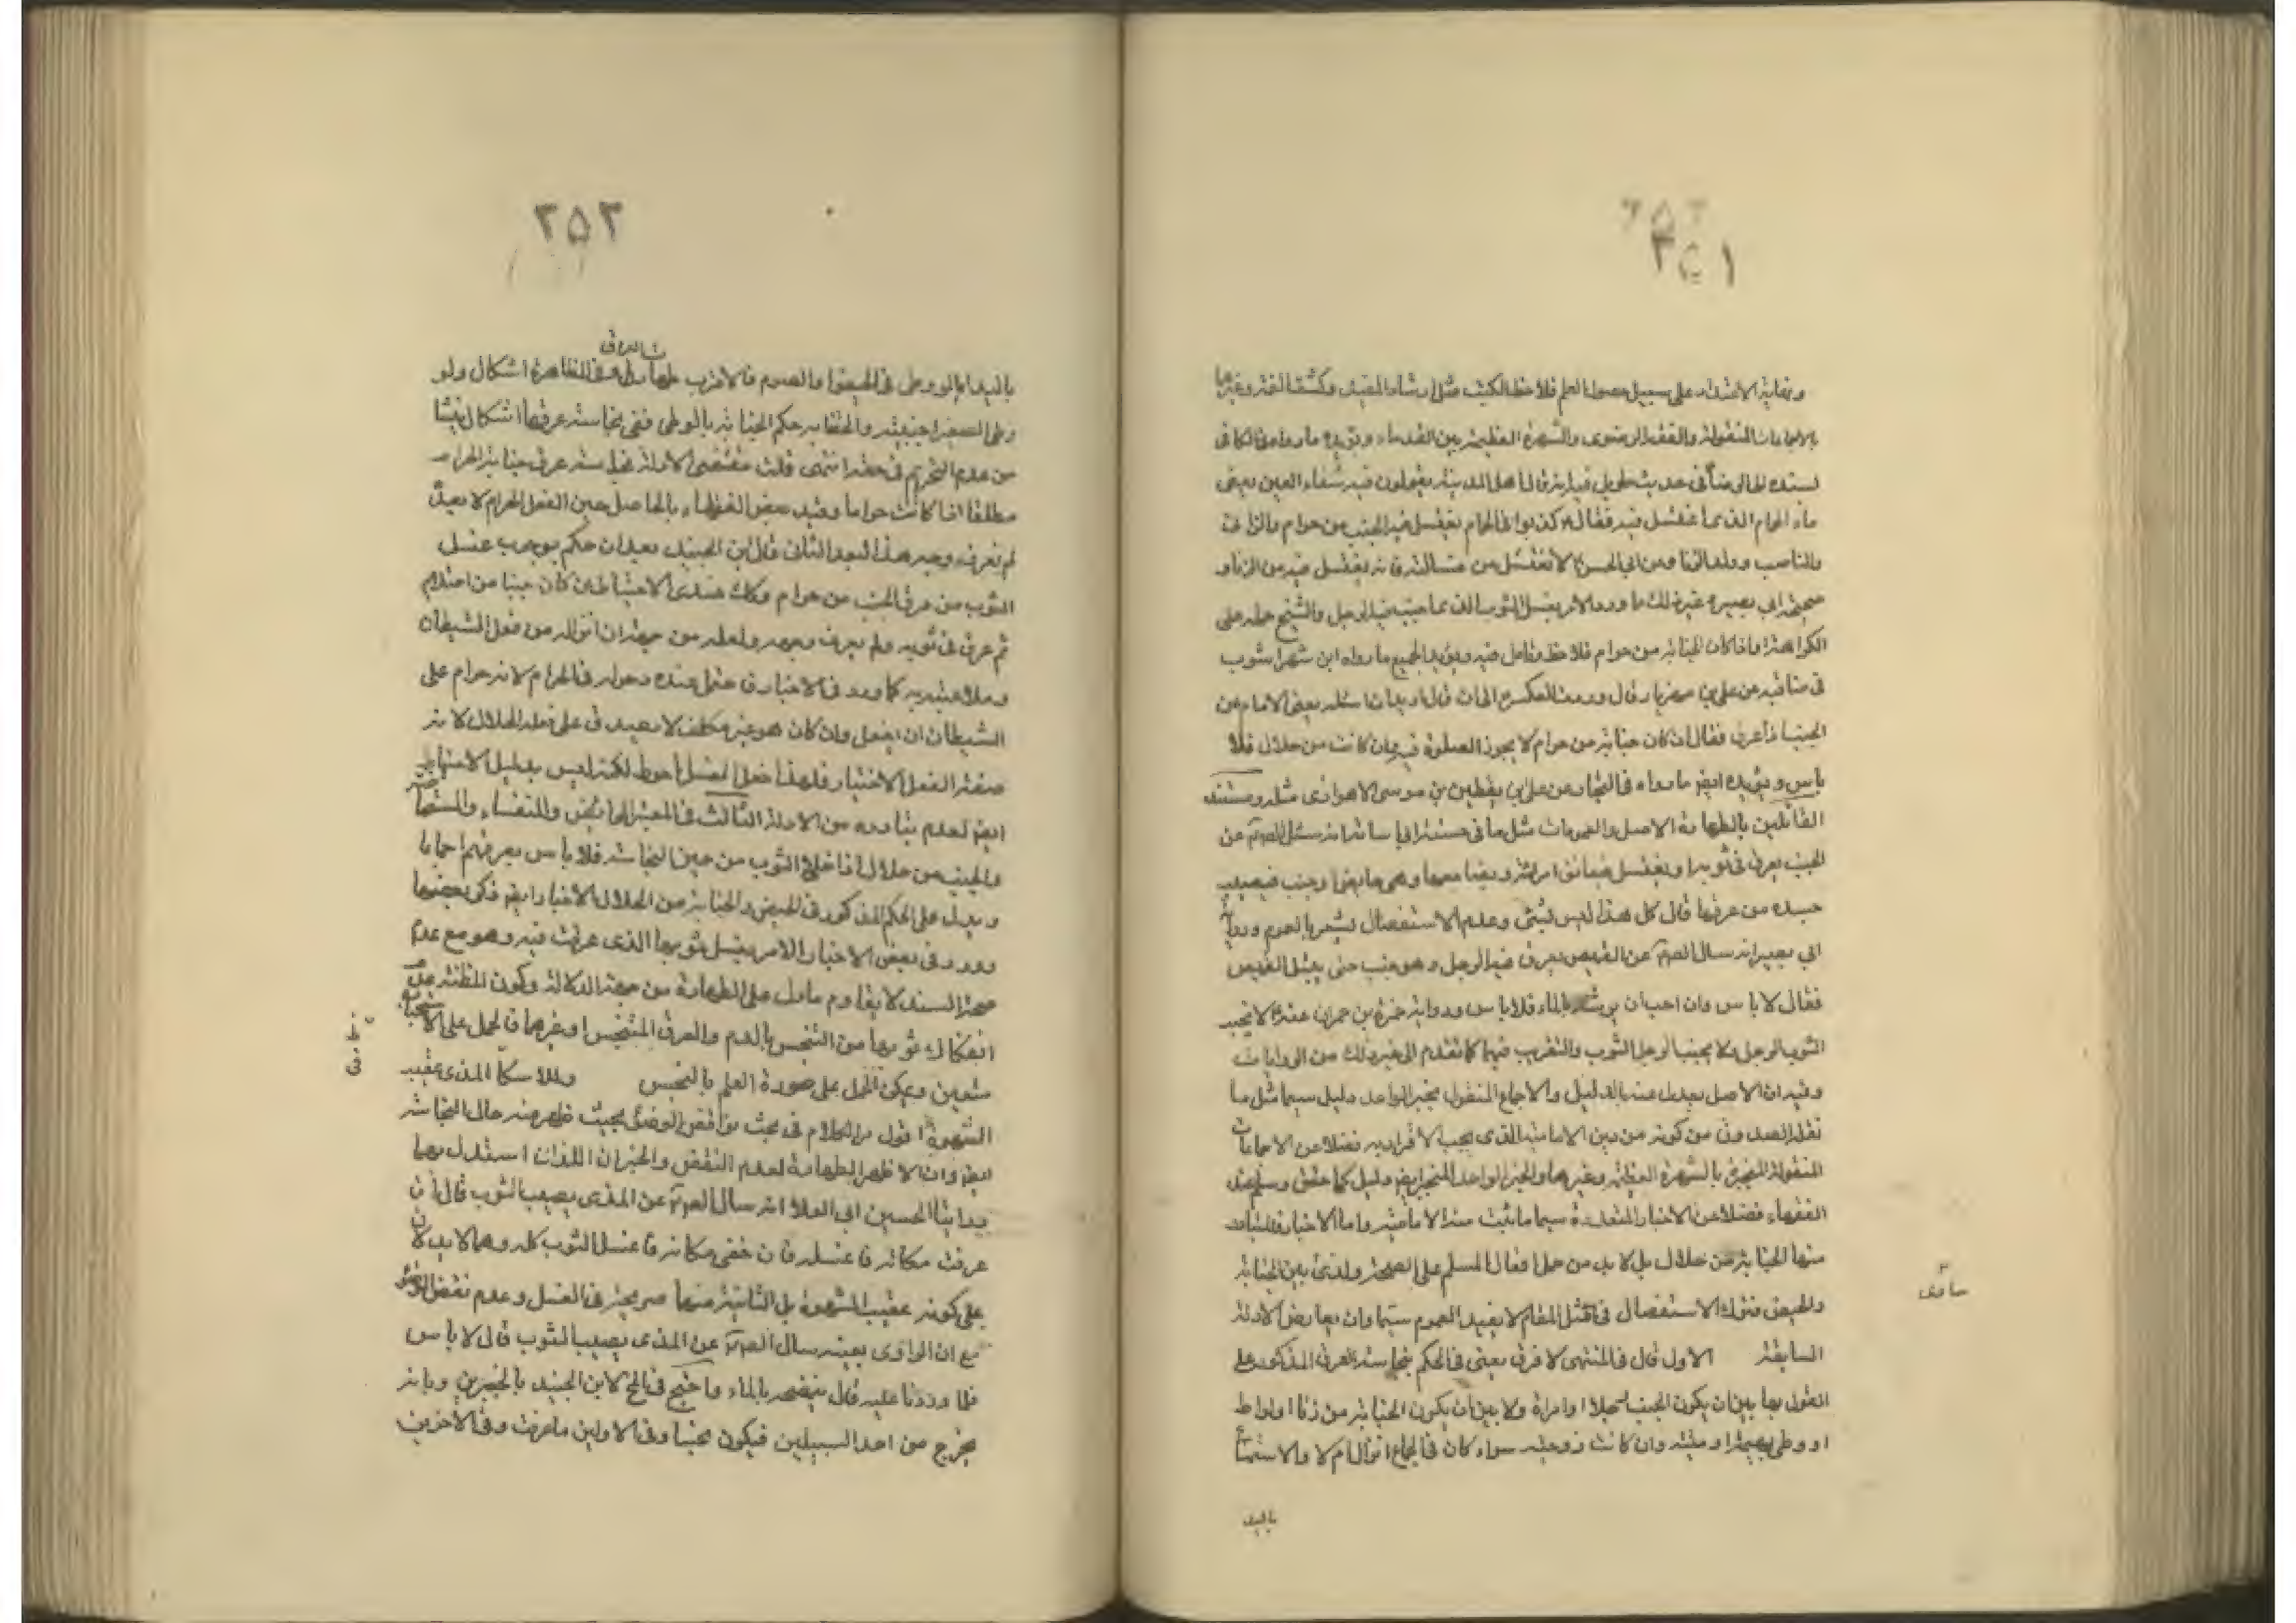 ٣٥١
ونهاية الاعتداد على سبيل حصول العلم فلاحظ الكتب مثل ارشاد المفيد وكشف الغمة وغيرها
بالاجماعات المنقولة والفقه الرضوى والشهرة العظيمة بين القدماء ويؤيده ما رواه فى الكافى
بسنده الى الرضا فى حديث طويل قيل ان اهل المدينة يقولون فيه شفاء العين يعنى
ماء الحمام الذى يغتسل فيه فقال كذبوا ان الحمام يغتسل فيه الجنب من حرام والزانى
والناصب وولد الزنا وعن ابى الحسن لا تغتسل من غسالته فانه يغتسل فيه من الزنا و
صحيحة ابى بصير وغير ذلك ما ورد الامر بغسل الثوب الذى يجنب فيه الرجل والشيخ حمله على
الكراهة او اذا كان الجنابة من حرام فلاحظ وتامل فيه ويؤيد الجميع ما رواه ابن شهراشوب
فى مناقبه عن على بن مهزيار قال وردت العسكر الى ان قال اريد ان اسئله يعنى الامام عن
الجنب اذا عرق فقال ان كان جنابته من حرام لا يجوز الصلوة فيه وان كانت من حلال فلا
باس ويؤيده ايضا ما رواه فى البحار عن على بن يقطين بن موسى الاهوازى مثله ومستند
القائلين بالطهارة الاصل والعمومات مثل ما فى حسنة ابى اسامة انه سئل الصادق عن
الجنب يعرق فى ثوبه او يغتسل فيعانق امراته ويضاجعها وهى حائض او جنب فيصيب
جسده من عرقها قال كل هذا ليس بشئ وعدم الاستفصال يشعر بالعموم ورواية
ابى بصير انه سال الصادق عن القميص يعرق فيه الرجل وهو جنب حتى يبتل القميص
فقال لا باس وان احب ان يرشه بالماء فلا باس ورواية حمزة بن حمران عنه لا يجنب
الثوب الرجل ولا يجنب الرجل الثوب والتقريب فيهما كما تقدم الى غير ذلك من الروايات
وفيه ان الاصل يعدل عنه بالدليل والاجماع المنقول بخبر الواحد دليل سيما مثل ما
نقله الصدوق من كونه من دين الامامية الذى يجب الاقرار به فضلا عن الاجماعات
المنقولة المنجبرة بالشهرة العظيمة وغيرها والخبر الواحد المنجبر ايضا دليل كما حقق وسلم عند
الفقهاء فضلا عن الاخبار المتعددة سيما ما ثبت منه الامامية واما الاخبار فالمتبادر
منها الجنابة من حلال بل لا بد من حمل افعال المسلم على الصحة ولذا بين الجنابة
والحيض فترك الاستفصال فى مثل المقام لا يفيد العموم سيما وان يعارض الادلة
السابقة الاول قال فى المنتهى لا فرق يعنى فى الحكم بنجاسة العرق المذكور على
القول بها بين ان يكون الجنب رجلا او امراة ولا بين ان يكون الجنابة من زنا او لواط
او وطى بهيمة او ميتة وان كانت زوجته سواء كان فى الجماع انزال ام لا والاستمناء
باليد
٣٥٢
العراق
باليد اما لو وطى فى الحيض او الصوم فالاقرب طهارة وفى المظاهرة اشكال ولو
وطى الصغير اجنبية والحقنا به حكم الجنابة بالوطى ففى نجاسة عرقه اشكال ينشا
من عدم التحريم فى حقه انتهى قلت مقتضى الادلة نجاسة عرق جنابة الحرام
مطلقا اذا كانت حراما وقيد بعض الفقهاء بالحاصل حين الفعل الحرام لا بعده
لم نعرف وجه هذا البعد الثانى قال ابن الجنيد بعد ان حكم بوجوب غسل
الثوب من عرق الجنب من حرام وكذلك عندى الاحتياط ان كان جنبا من احتلام
ثم عرق فى ثوبه ولم يعرف وجهه ولعله من جهة ان انزاله من فعل الشيطان
وملاعبته به كما ورد فى الاخبار فاحتمل عنده دخوله فى الحرام لانه حرام على
الشيطان ان يفعل وان كان هو غير مكلف لا يصدق على فعله الحلال لانه
صفة الفعل الاختيار فلهذا جعل الغسل احوط لكنه ليس بدليل الاجتهاد
ايضا لعدم تبادره من الادلة الثالث فى المعتبر الحائض والنفساء والمستحاضة
والجنب من حلال اذا خلا الثوب من عين النجاسة فلا باس بعرقهم اجماعا
ويدل على الحكم المذكور فى الحيض والجنابة من الحلال الاخبار ايضا ذكر بعضها
وورد فى بعض الاخبار الامر بغسل ثوبها الذى عرقت فيه وهو مع عدم
صحة السند لا يقاوم ما دل على الطهارة من جهة الدلالة وكون المظنة عدم
انفكاك ثوبها من التنجس بالدم والعرق المتنجس او غيرهما فالحمل على الاستحباب
متعين ويمكن الحمل على صورة العلم بالتنجس والاسكاف المذى عقيب
الشهوة اقول مر الكلام فى بحث نواقض الوضوء بحيث ظهر منه حال النجاسة
ايضا وان الاظهر الطهارة لعدم النقض والخبران اللذان استدل بهما
روايتا الحسين ابى العلا انه سال الصادق عن المذى يصيب الثوب قال ان
عرفت مكانه فاغسله فان خفى مكانه فاغسل الثوب كله وهما لا يدلان
على كونه عقيب الشهوة بل الثانية منها صريحة فى الغسل وعدم نقض الوضوء
مع ان الراوى بعينه سال الصادق عن المذى يصيب الثوب قال لا باس
فلما رددنا عليه قال ينضحه بالماء واحتج فى المخ لابن الجنيد بالخبرين وبانه
يخرج من احد السبيلين فيكون نجسا وفى الاولين ما عرفت وفى الاخرين